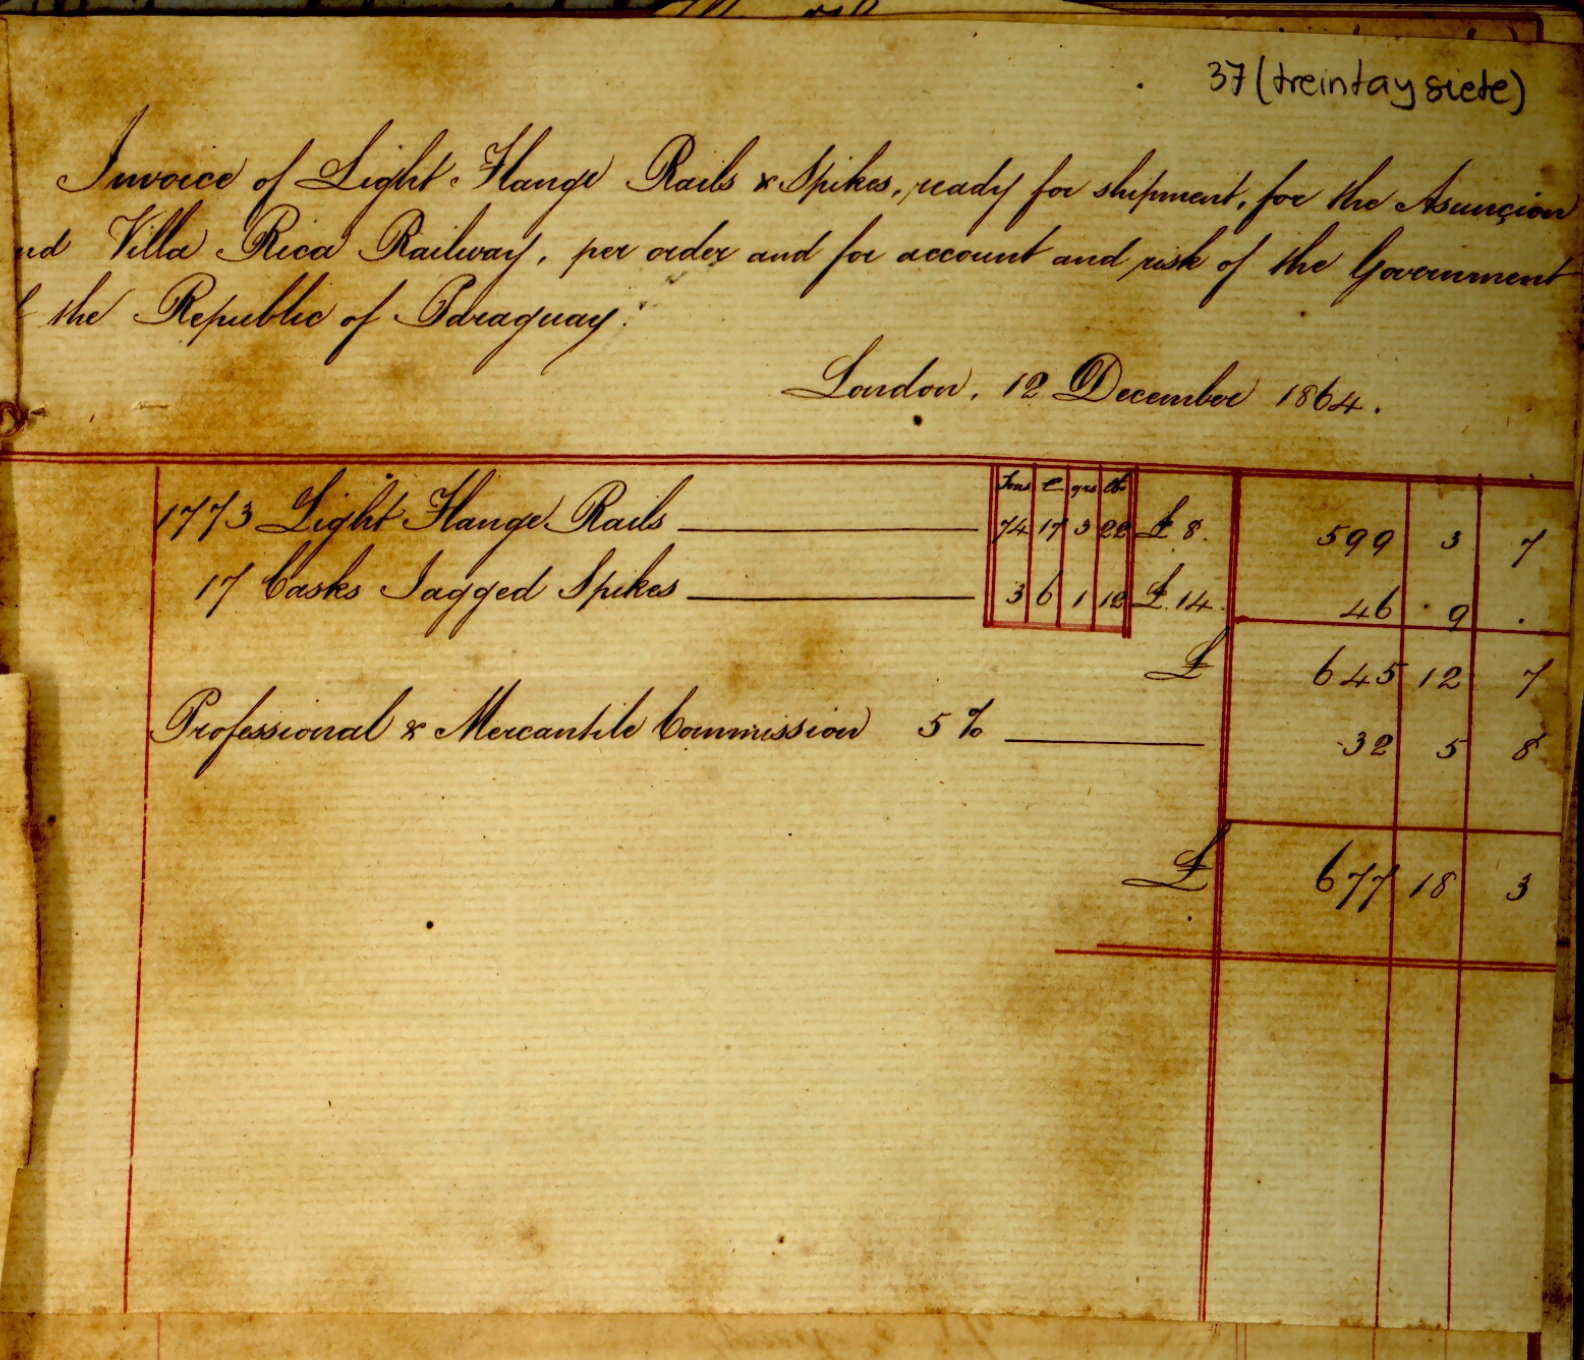 37 (treinta y siete)
Invoice of Light Flange Rails & Spikes, ready for shipment, for the Asunçion
nd Villa Rica Railway, per order and for account and risk of the Government
the Republic of Paraguay.
London, 12 December 1864.
Tons C qrs lb
1773 Light Flange Rails 74 17 3 22 £ 8. 599 3 7
17 Casks Jagged Spikes 3 6 1 12 £. 14. 46 9 .
£ 645 12 7
Professional & Mercantile Commission 5 % 32 5 8
£ 677 18 3